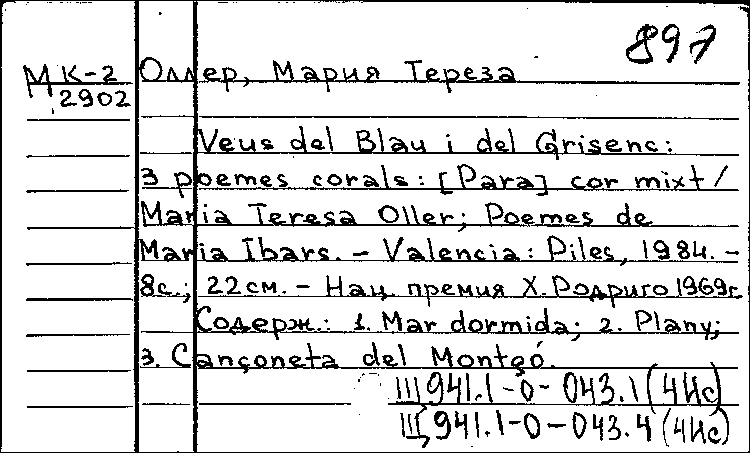 897
МК-2 Оллер, Мария Тереза
2902
Veus del Blau i del Grisenc:
3 poemes corals: [Para] cor mixt /
Maria Teresa Oller; Poemes de
Maria Ibars. - Valencia: Piles, 1984. -
8с.; 22 см. - Нац. премия Х. Родриго 1969г.
Содерж.: 1. Mar dormida; 2. Plany;
3. Cançoneta del Montgó.
Щ941.1-0-043.1(4Ис)
Щ941.1-0-043.4(4Ис)